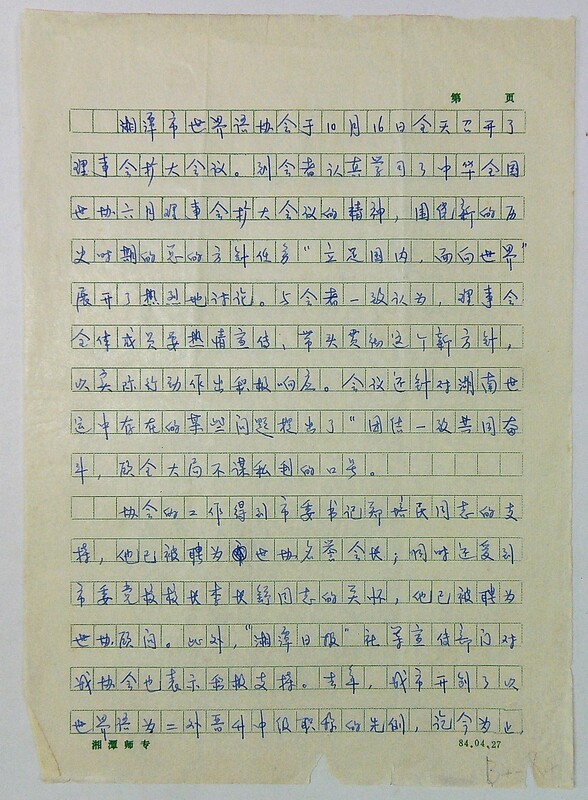 第 页
湘潭市世界语协会于10月16日全天召开了
理事会扩大会议。到会者认真学习了中华全国
世协六月理事会扩大会议的精神，围绕新的历
史时期的总的方针任务“立足国内，面向世界”
展开了热烈地讨论。与会者一致认为，理事会
全体成员要热情宣传、带头贯彻这个新方针，
以实际行动作出积极响应。会议还针对湖南世
运中存在的某些问题提出了“团结一致共同奋
斗，顾全大局不谋私利的口号。
协会的工作得到市委书记郑培民同志的支
持，他已被聘为世协名誉会长；同时还受到
市委党校校长李长舒同志的关怀，他已被聘为
世协顾问。此外，“湘潭日报”社等宣传部门对
我协会也表示积极支持。去年，我市开创了以
世界语为二外晋升中级职称的先例，迄今为止，
湘潭师专 84.04.27